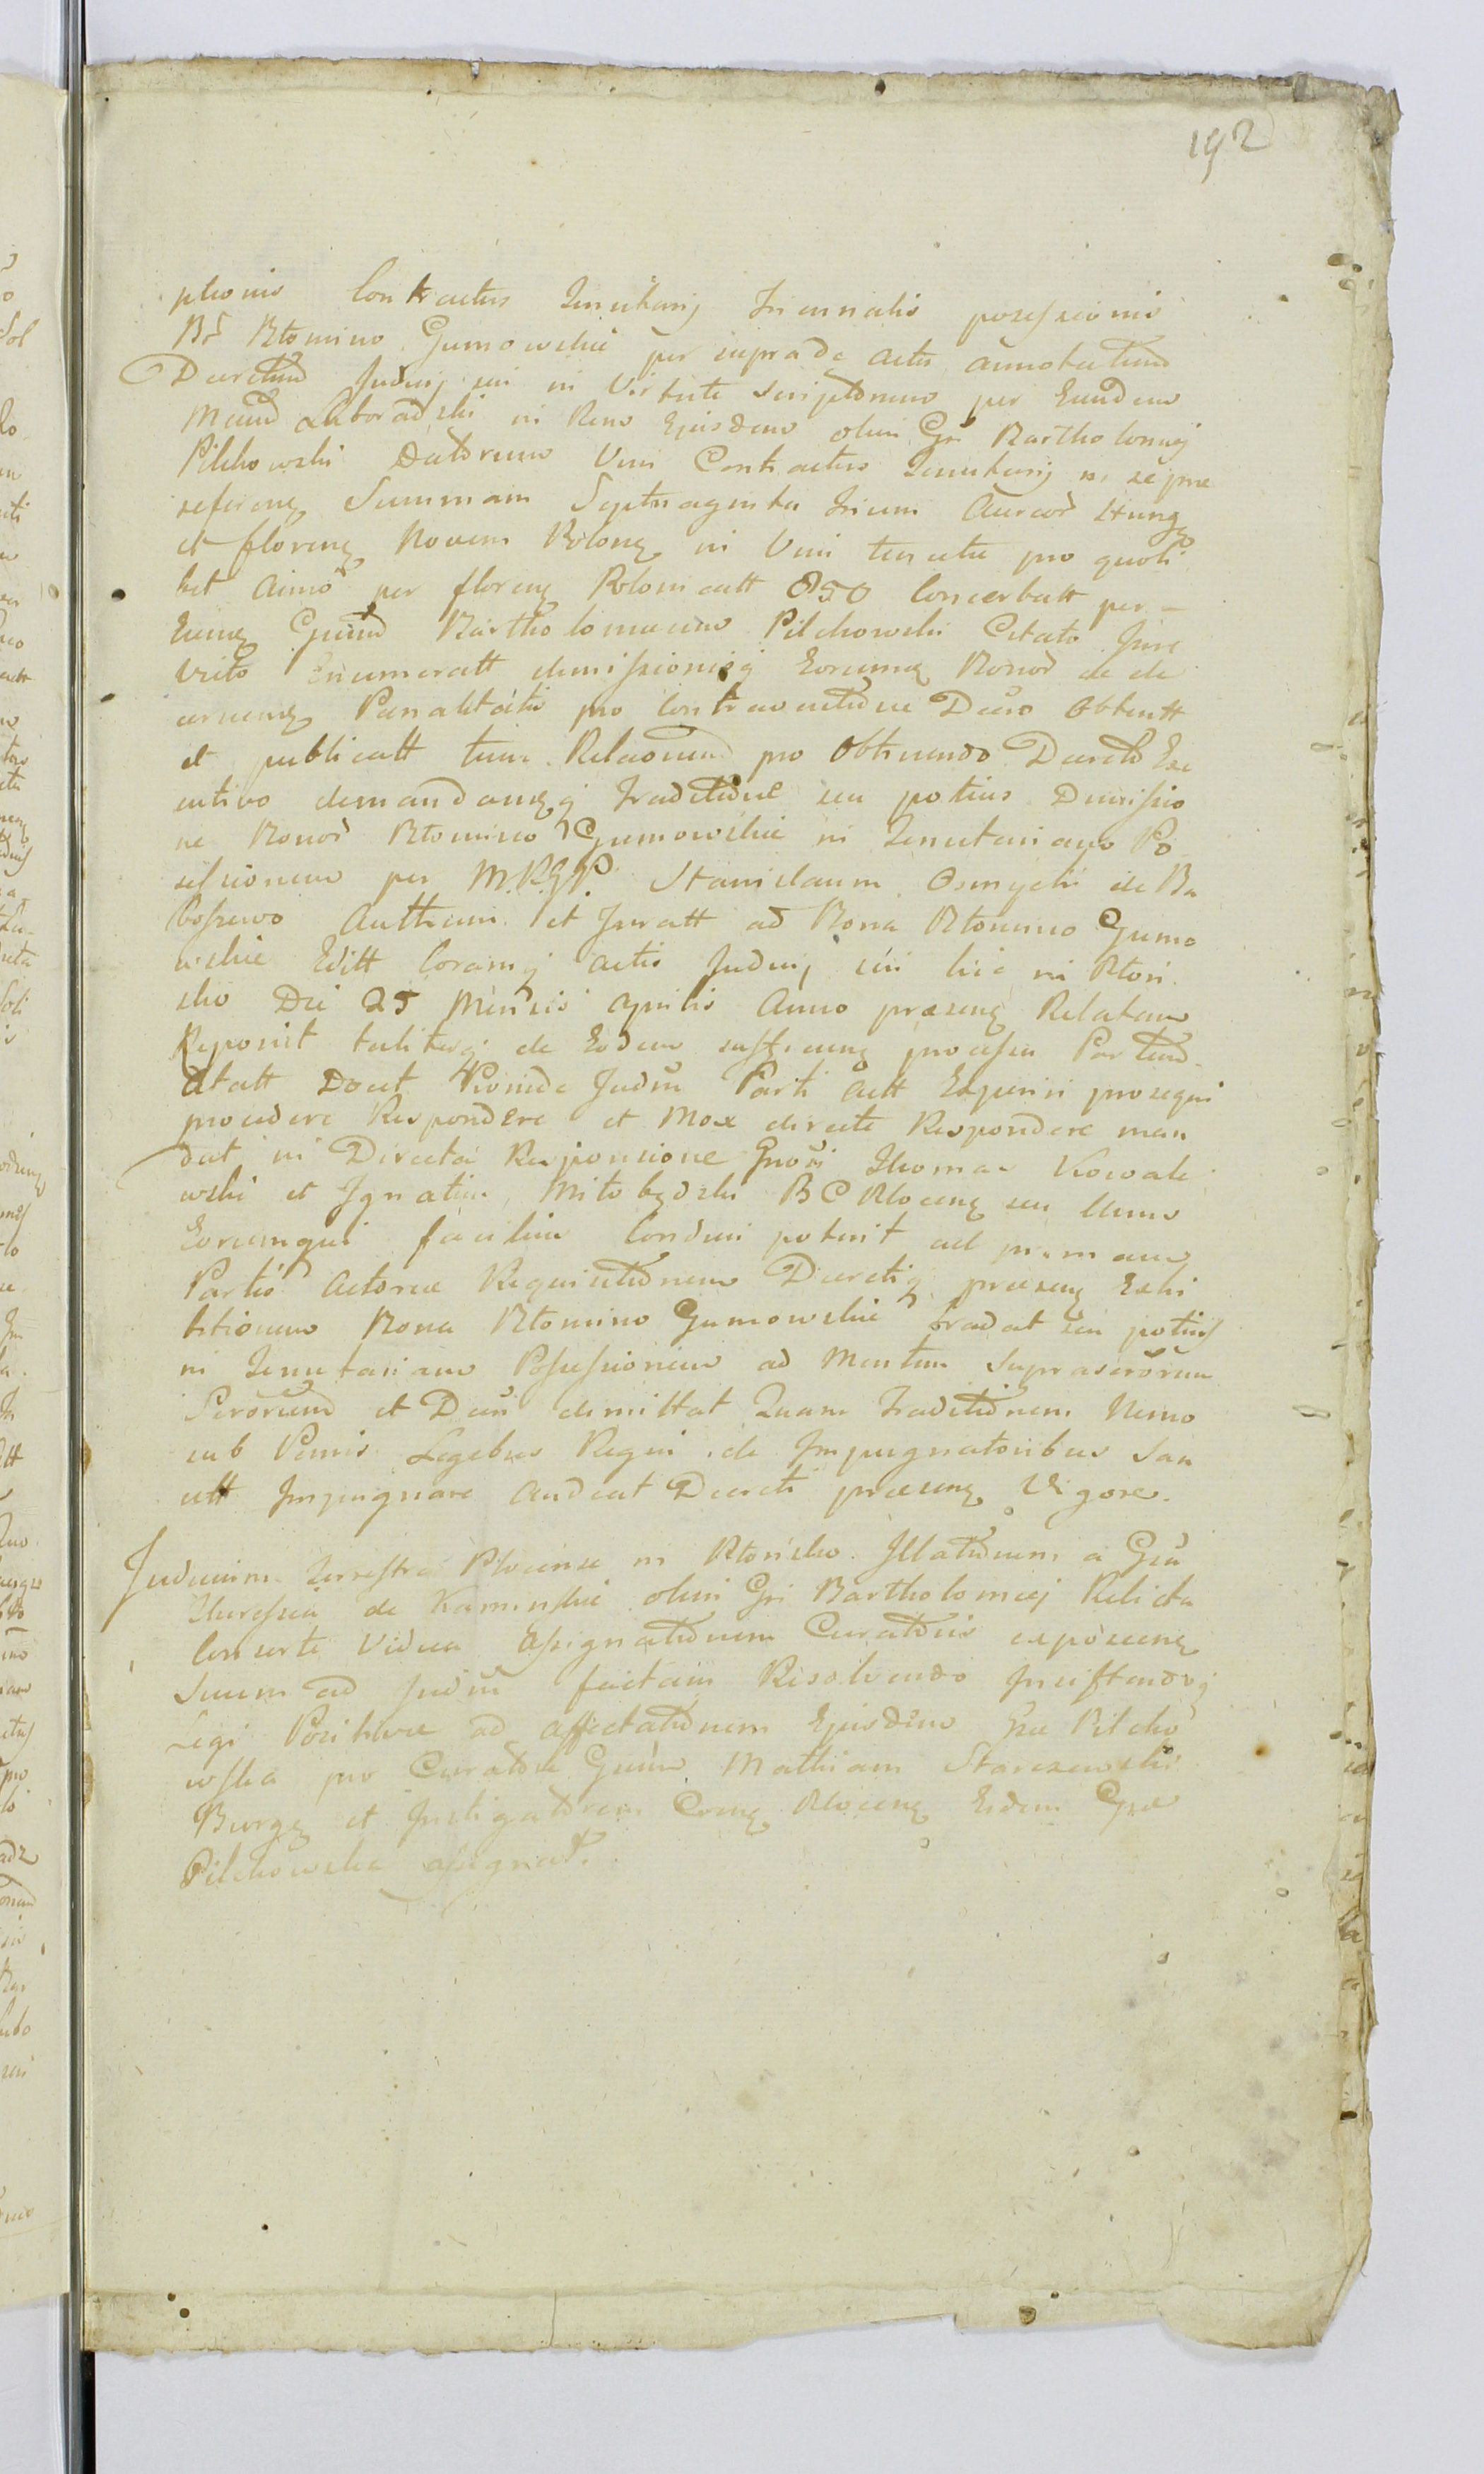 192
ptionis Contractus Tenutarij Triennalis possessionis
Bō Płomino Gumowskie per suprade actu annotatum
Decretum Judicij sui in Virtute Scriptorum per Eundem
Mcum Laboradzki in Rem Ejusdem olim Gsi Bartholomej
Pilchowski Datorum Vini Contractus Tenutarij in se prae
referenq Summam Septuaginta trium Aureor Hungq
et florenq Novem Polonq in Vim tenutae pro quoli
bet Anno per florenq Polonicatt 850 Concerbatt per
Eunq Gnum Bartholomaeum Pilchowski Citato Jure
victo Enumeratt dimissionisq Eorumq Bonor de de
cernenq Paenalitatis pro Contraventione Dano Obtentt
et publicatt tum Relaonem pro Obtinendo Decreto Exe
cutivo demandanqq traditione seu potius Dimissio
ne Bonor Płomino Gumowskie in Tenutariam Po
sessionem per M.R.G.P. Stanislaum Osmycki de Ba
boszewo Authenm et Juratt ad Bona Płomino Gumo
wskie Editt Coramq actis Judicij sui hic in Płon
sko Die 25 Mensis Aprilis Anno praesenq Relatam
Reposuit taliterq de Eodem sufficienq processu Partium
Citatt Docet Proinde Judm Parti Citt Experiri prosequi
procedere Respondere et Mox directe Respondere man
dat in Directa Responsione Gnosi Thomae Kowale
wski et Ignatium Mitobędzki B C Plocenq seu Unus
Eorumqui facilius Conduci poterit ad primam
Partis Actoreae Requisitionem Decretiq praesenq Exhi
bitionem Bona Płomino Gumowskie tradat seu potius
in Tenutariam Possessionem ad Mentem Suprascrōrum
Scrōrum et Dani dimittat Quam Traditionem Nemo
sub Penis Legebus Regni de Impugnatoribus San
citt Impugnare Audeat Decreti praesenq Vigore.
Judicium Terrestre Plocense in Płońsko Illationem a Gsa
Theressia de Kaminskie olim Gsi Bartholomej Relicta
Consorte Vidua Assignationem Curatoris exposcenq
Suum ad Judm factam Resolvendo Insistendoq
Legi Positivae ad affectationem Ejusdem Gsae Pilcho
wska pro Curatore Gnum Mathiam Starczewski
Burgq et Instigatorem Crenq Plocenq Eidem Gsae
Pilchowska assignat.